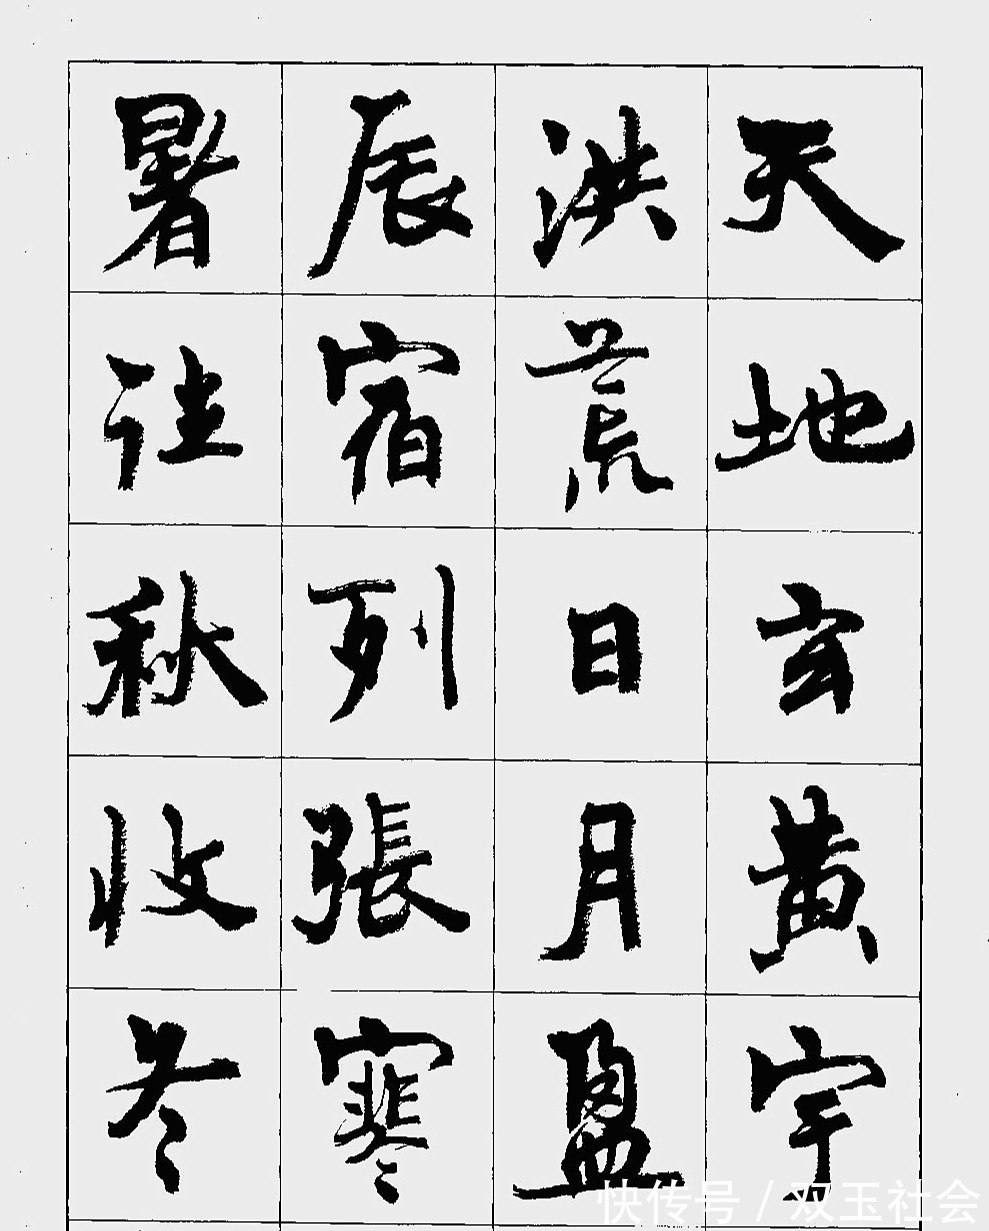 天地玄黄宇
洪荒日月盈
辰宿列張寒
暑往秋收冬
快传号 / 双玉社会